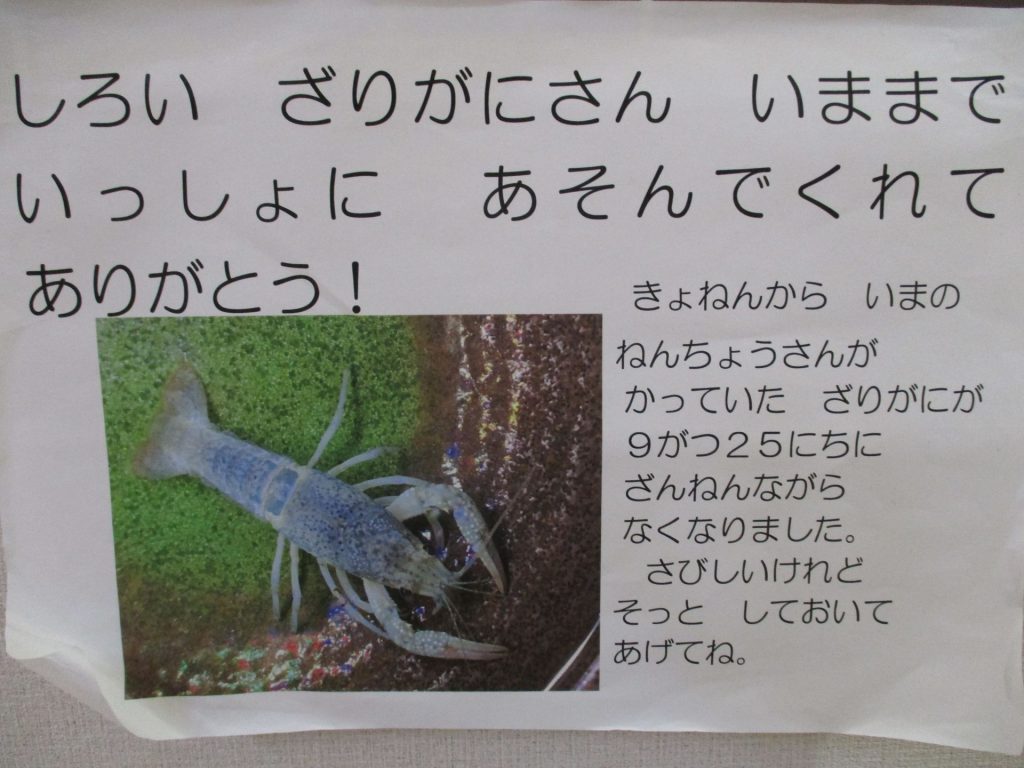 しろい　ざりがにさん　いままで
いっしょに　あそんでくれて
ありがとう！
きょねんから　いまの
ねんちょうさんが
かっていた　ざりがにが
９がつ２５にちに
ざんねんながら
なくなりました。
さびしいけれど
そっと　しておいて
あげてね。